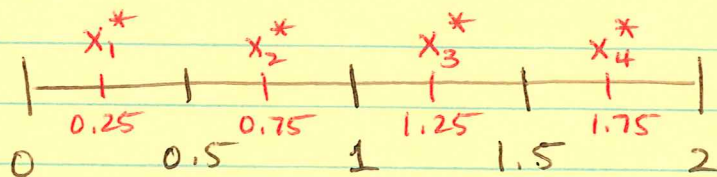 x₁* x₂* x₃* x₄*
0.25 0.75 1.25 1.75
0 0.5 1 1.5 2